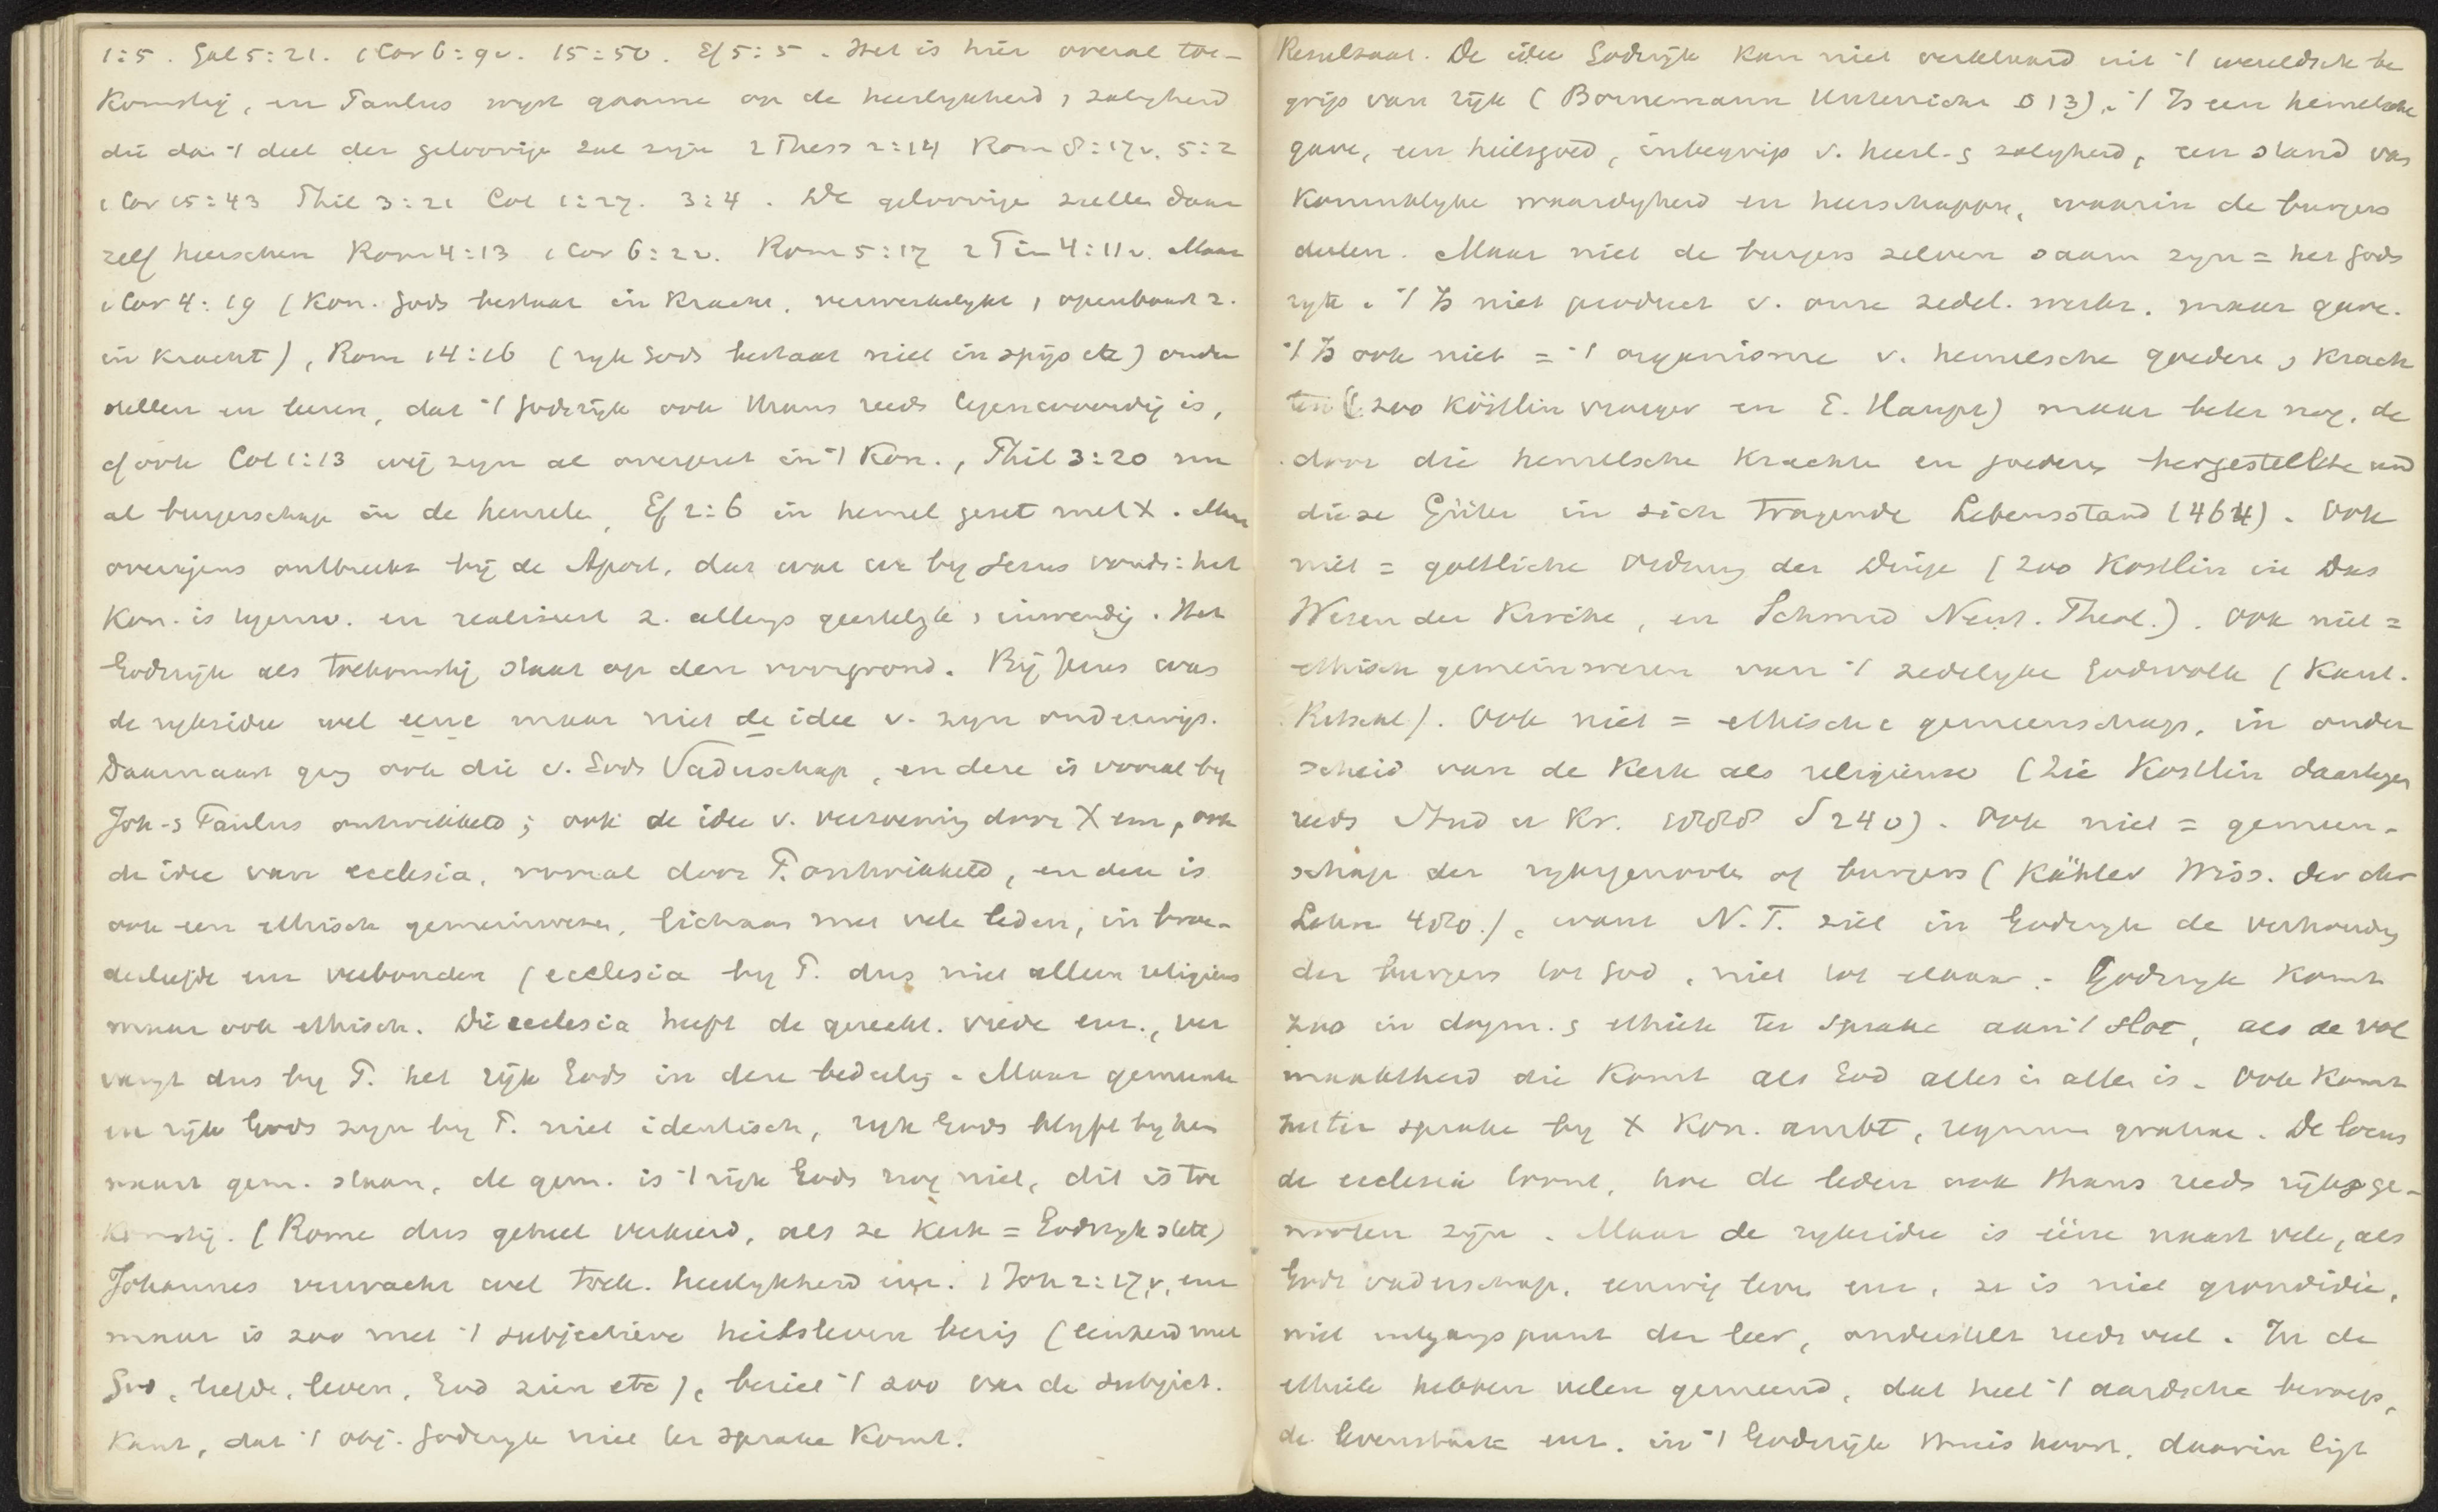 1:5. Gal 5:21. 1 Cor 6:9v. 15:50. Ef 5:5. Het is hier overal toe-
komstig, en Paulus wyst gaarne op de heerlykheid, zaligheid
die dan 't deel der geloovige zal zyn 2 Thess 2:14 Rom 8:17v. 5:2
1 Cor 15:43 Phil 3:21 Col 1:27. 3:4. De geloovige zulle daar
zelf heerschen Rom 4:13 1 Cor 6:2v. Rom 5:17 2 Tim 4:11v. Maar
1 Cor 4:19 (Kon. Gods bestaat in kracht, verwerkelykt, openbaart z.
in kracht), Rom 14:16 (ryk Gods bestaat niet in spijs etc) onder
stellen en leeren, dat 't Godsrijk ook thans reeds tegenwoordig is,
cf ook Col 1:13 wij zyn al overgezet in 't Kon., Phil 3:20 nu
al burgerschap in de hemele, Ef 2:6 in hemel gezet met X. Maar
overigens ontbreekt bij de Apost. dat wat we by Jezus vonde: het
Kon. is tegenw. en realiseert z. allengs geestelyk, inwendig. Het
Godsrijk als toekomstig staat op den voorgrond. Bij Jezus was
de ryksidee wel eene maar niet de idee v. zyn onderwijs.
Daarnaast ging ook die v. Gods Vaderschap, en deze is vooral by
Joh. s Paulus ontwikkeld; ook de idee v. verzoening door X enz, ook
de idee van ecclesia, vooral door P. ontwikkeld, en deze is
ook een ethisch gemeinwesen, lichaam met vele leden, in broe-
derliefde enz verbonden (ecclesia by P. dus niet alleen religieus
maar ook ethisch. Die ecclesia heeft de gerecht. vrede enz., ver
vangt dus by P. het rijk Gods in deze bedeelig. Maar gemeente
en rijk Gods zyn by P. niet identisch, ryk Gods blyft by hem
naast gem. staan, de gem. is 't rijk Gods nog niet, dit is toe
komstig. (Rome dus geheel verkeerd, als ze kerk = Godsryk stelt)
Johannes verwacht wel toek. heerlykheid enz. 1 Joh 2:17v, enz
maar is zoo met 't subjectieve heilsleven bezig (eenheid met
God, liefde, leven, God zien etc), beziet 't zoo van de subject.
kant, dat 't obj. Godsryk niet ter sprake komt.
Resultaat. De idee Godsrijk kan niet verklaard uit 't wereldsche be
grip van rijk (Bornemann Unterricht S 13). 't Is een hemelsche
gave, een heilsgoed, inbegrip v. heerl. s zaligheid, een stand van
koninklyke waardigheid en heerschappy, waarin de burgers
deelen. Maar niet de burgers zelven saam zyn = het Gods
ryk. 't Is niet product v. onze zedel. werkz. maar gave.
't Is ook niet = 't organisme v. hemelsche goedere, krach
ten (zoo Köstlin vroeger en E. Haupt) maar beter nog, de
door die hemelsche krachte en goedere hergestellte und
diese Güter in sich tragende Lebensstand (464). Ook
niet = gottliche Ordnung der Dinge (zoo Kostlin in Das
Wesen der Kirche, en Schmid Neut. Theol.). Ook niet =
ethisch gemeinwesen van 't zedelyke Godsvolk (Kant.
Ritschl). Ook niet = ethische gemeenschap, in onder
scheid van de Kerk als religieuse (Zie Kostlin daartegen
reeds Stud u Kr. 1888 S 240). Ook niet = gemeen-
schap der ryksgenoote of burgers (Kähler Wiss. der chr
Lehre 480.), want N.T. ziet in Godsryk de verhoudig
der burgers tot God, niet tot elkaar. - Godsryk komt
zoo in dogm. s ethiek ter sprake aan 't slot, als de vol
maaktheid die komt als God alles in alles is. Ook komt
het ter sprake by X Kon. ambt, regnum gratiae. De locus
de ecclesia toont, hoe de leden ook thans reeds rijksge-
nooten zijn. Maar de ryksidee is ééne naast vele, als
Gods vaderschap, eeuwig leve enz, ze is niet grondidee,
niet uitgangspunt der leer, onderstelt reeds veel. In de
ethiek hebben velen gemeend, dat heel 't aardsche beroep,
de levenstaak enz. in 't Godsrijk thuis hoort, daarin ligt